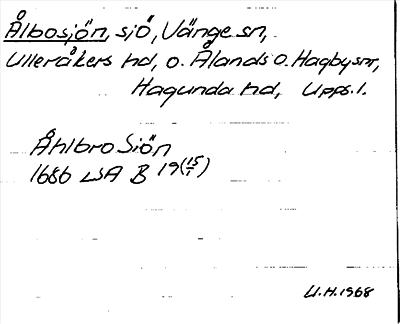 Ålbosjön, sjö, Vänge sn,
Ulleråkers hd, o. Ålands o. Hagby snr,
Hagunda hd, Upps. l.
Åhlbro Siön
1686 LSA B 19 (15/1)
U.H. 1968